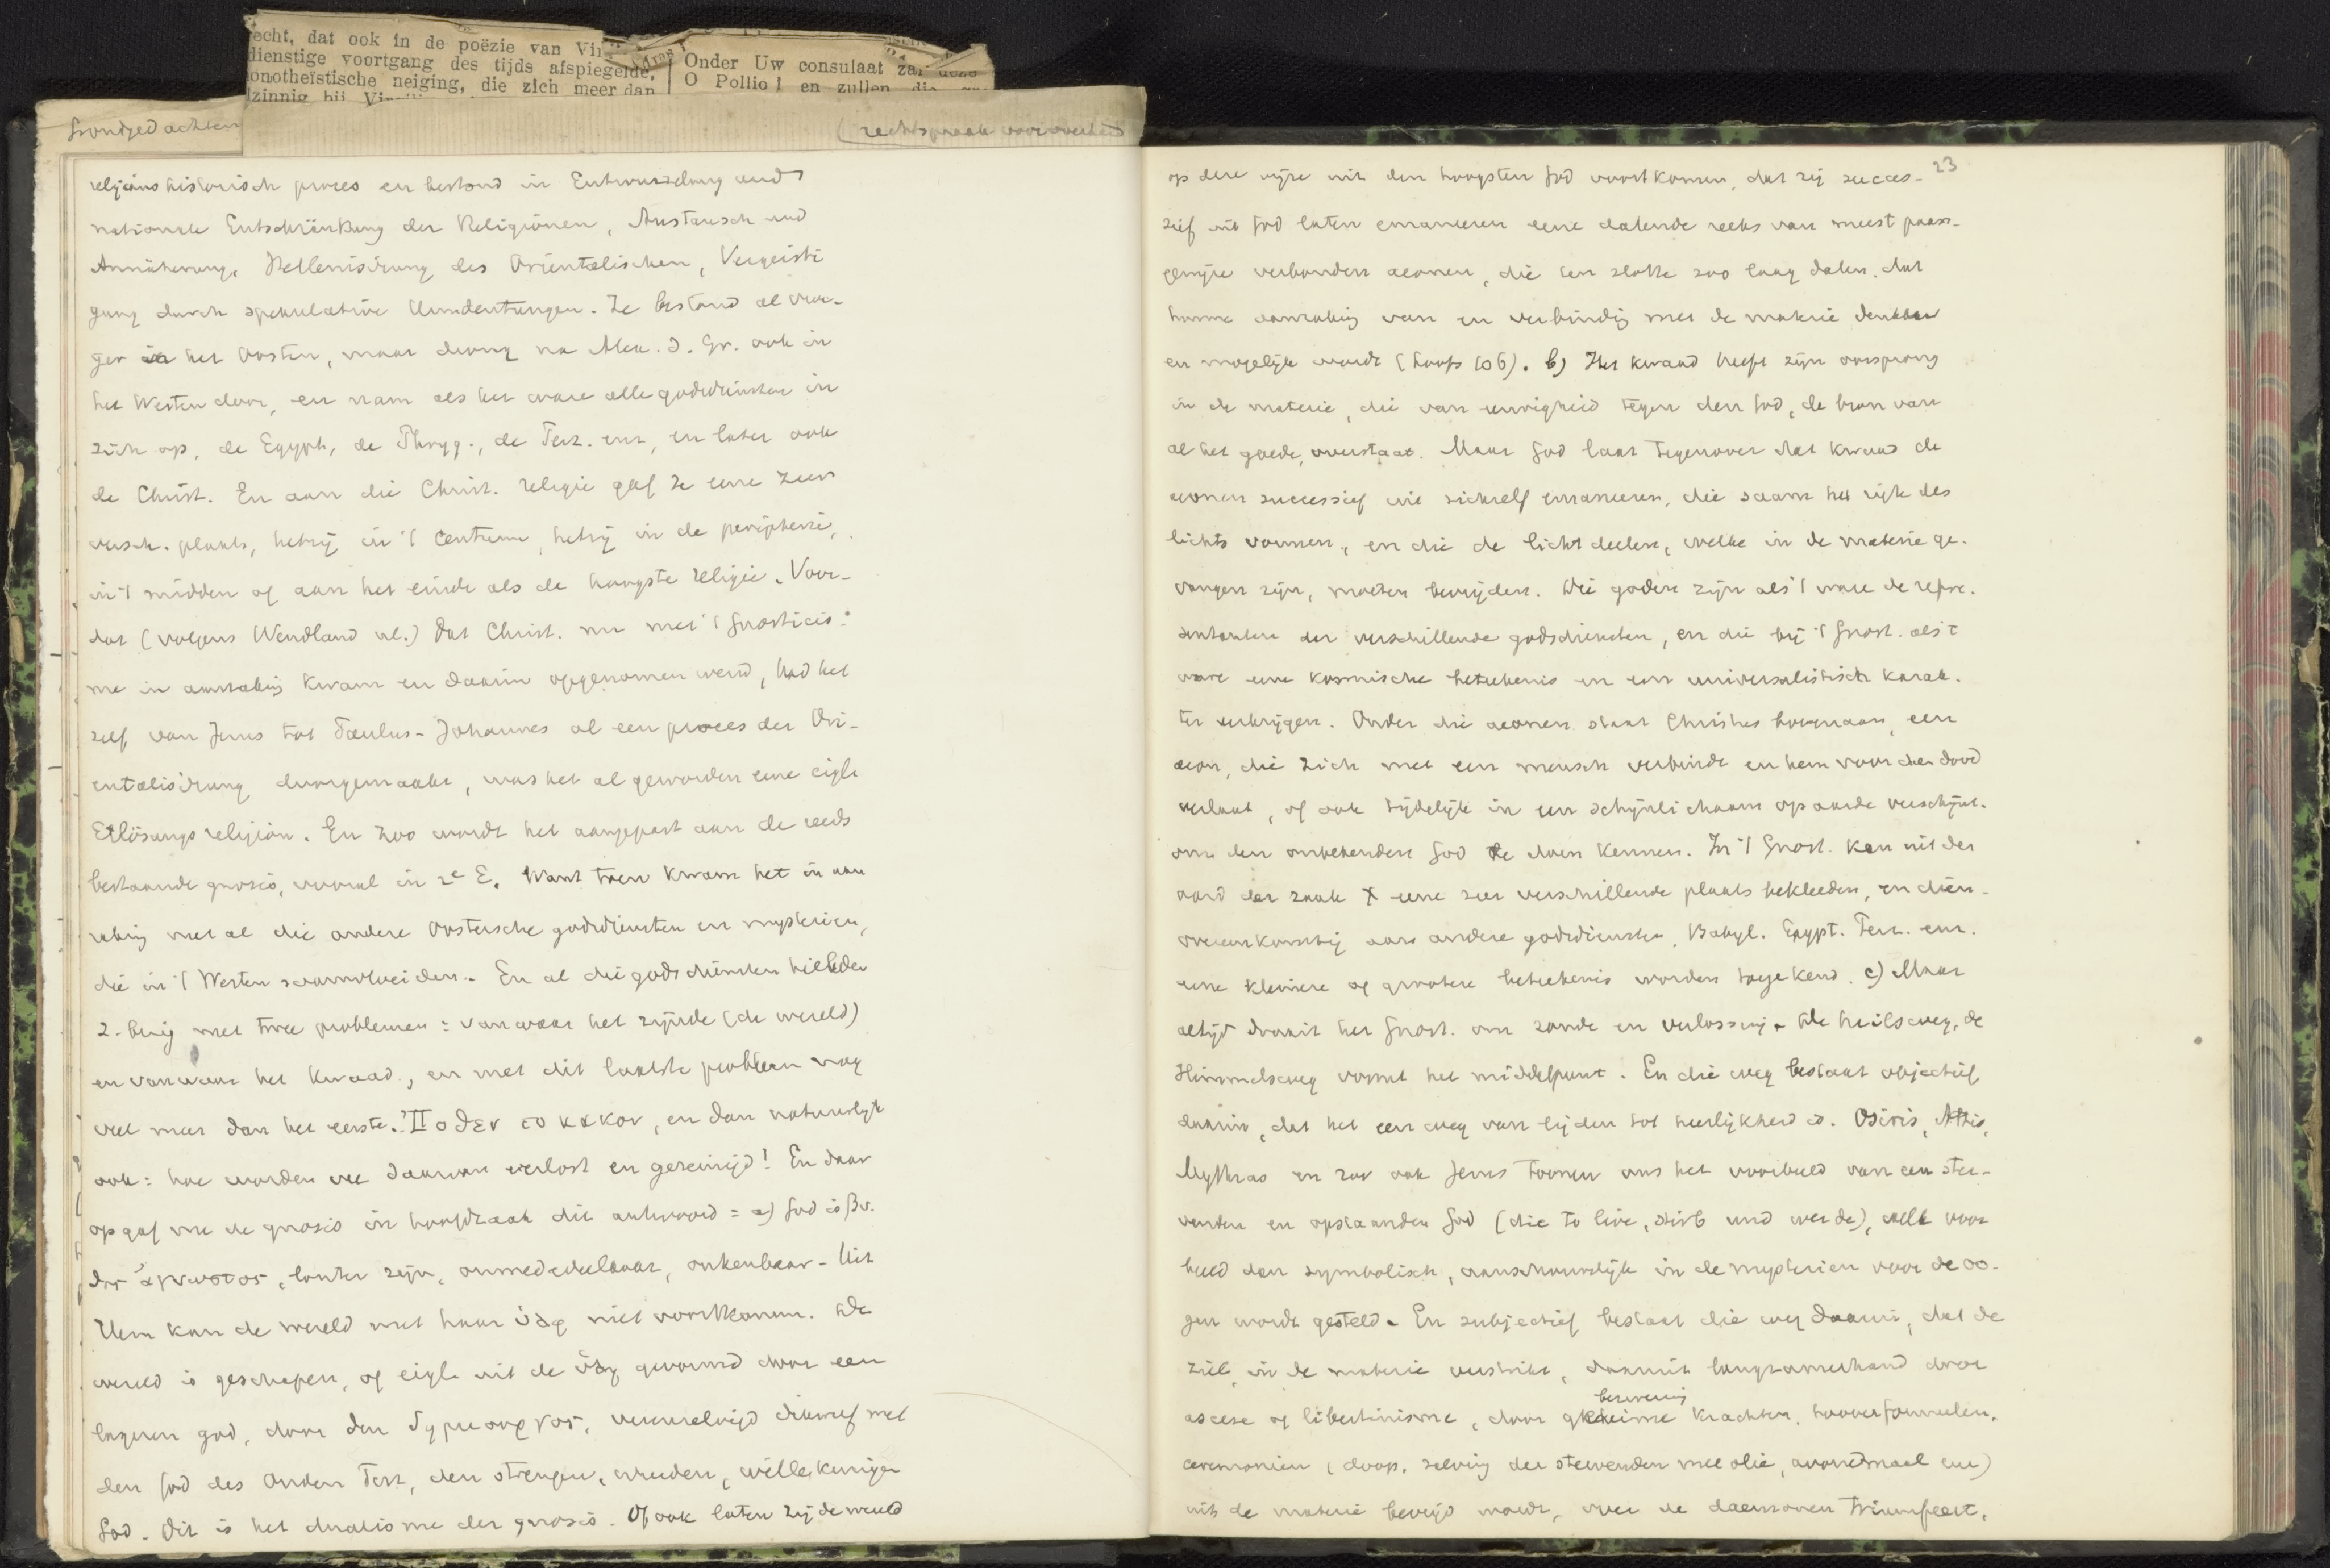 echt, dat ook in de poëzie van Vir
dienstige voortgang des tijds afspiegelde,
onotheïstische neiging, die zich meer dan
zinnig bij
Onder Uw consulaat zal deze
O Pollio! en zullen die
Grondgedachten
(rechtspraak
religionshistorisch proces en bestond in Entwurzelung und
nationale Entschränkung der Religionen, Austausch und
Annäherung, Hellenisirung des Orientalischen, Vergeisti
gung durch spekulative Umdeutungen. Ze bestond al vroe-
ger in het Oosten, maar drong na Alex. d. Gr. ook in
het Westen door, en nam als het ware alle godsdiensten in
zich op, de Egypt, de Phryg., de Perz. enz, en later ook
de Christ. En aan die Christ. religie gaf ze eene zeer
versch. plaats, hetzij in 't centrum, hetzij in de peripherie,
in 't midden of aan het einde als de hoogste religie. Voor-
dat (volgens Wendland nl.) dat Christ. nu met 't Gnosticis-
me in aanraking kwam en daarin opgenomen werd, had het
zelf van Jezus tot Paulus-Johannes al een proces der Ori-
entalisirung doorgemaakt, was het al geworden eene eigl.
Erlösungsreligion. En zoo wordt het aangepast aan de reeds
bestaande gnosis, vooral in 2e E. Want toen kwam het in aan
raking met al die andere Oostersche godsdiensten en mysterien,
die in 't Westen saamvloeiden. En al die godsdiensten hielden
z. bezig met twee problemen: vanwaar het zijnde (de wereld)
en vanwaar het kwaad, en met dit laatste probleem nog
veel meer dan het eerste. Ποθεν το κακον, en dan natuurlijk
ook: hoe worden we daarvan verlost en gereinigd! En daar
op gaf nu de gnosis in hoofdzaak dit antwoord: a) God is βυ-
θος ἀγνωστος, louter zijn, onmededeelbaar, onkenbaar. Uit
Hem kan de wereld met haar ὑλη niet voortkomen. De
wereld is geschapen, of eigl. uit de ὑλη gevormd door een
lageren god, door den δημιουργος, vereenzelvigd dikwerf met
den God des Ouden Test, den strengen, wreeden, willekeurigen
God. Dit is het dualisme der gnosis. Of ook laten zij de wereld
23
op deze wijze uit den hoogsten God voortkomen, dat zij succes-
sief uit God laten emaneeren eene dalende reeks van meest paars-
gewijze verbonden aeonen, die ten slotte zoo laag dalen, dat
hunne aanraking van en verbinding met de materie denkbaar
en mogelijk wordt (Loofs 106). b) Het kwaad heeft zijn oorsprong
in de materie, die van eeuwigheid tegen den God, de bron van
al het goede, overstaat. Maar God laat tegenover dat kwaad de
aeonen successief uit zichzelf emaneeren, die saam het rijk des
lichts vormen, en die de lichtdeelen, welke in de materie ge-
vangen zijn, moeten bevrijden. Die goden zijn als 't ware de repre-
sentanten der verschillende godsdiensten, en die bij 't Gnost. als 't
ware eene kosmische beteekenis en een universalistisch karak-
ter verkrijgen. Onder die aeonen staat Christus bovenaan, een
aeon, die zich met een mensch verbindt en hem voor den dood
verlaat, of ook tijdelijk in een schijnlichaam op aarde verschijnt.
om den onbekenden God te doen kennen. In 't Gnost. kan uit den
aard der zaak X eene zeer verschillende plaats bekleeden, en dien-
overeenkomstig aan andere godsdiensten, Babyl. Egypt. Perz. enz.
eene kleinere of grootere beteekenis worden toegekend. c) Maar
altijd draait het Gnost. om zonde en verlossing. De heilsweg, de
Himmelsweg vormt het middelpunt. En die weg bestaat objectief
daarin, dat het een weg van lijden tot heerlijkheid is. Osiris, Attis,
Mythras en zoo ook Jezus toonen ons het voorbeeld van een ster-
venden en opstaanden God (die to live, stirb und werde), welk voor
beeld dan symbolisch, aanschouwelijk in de mysterien voor de oo-
gen wordt gesteld. En subjectief bestaat die weg daarin, dat de
ziel, in de materie verstrikt, daaruit langzamerhand door
ascese of libertinisme, door geheime krachten, tooverformulen,
bezwering
ceremonien (doop, zalving der stervenden met olie, avondmaal enz)
uit de materie bevrijd wordt, over de daemonen triumfeert,